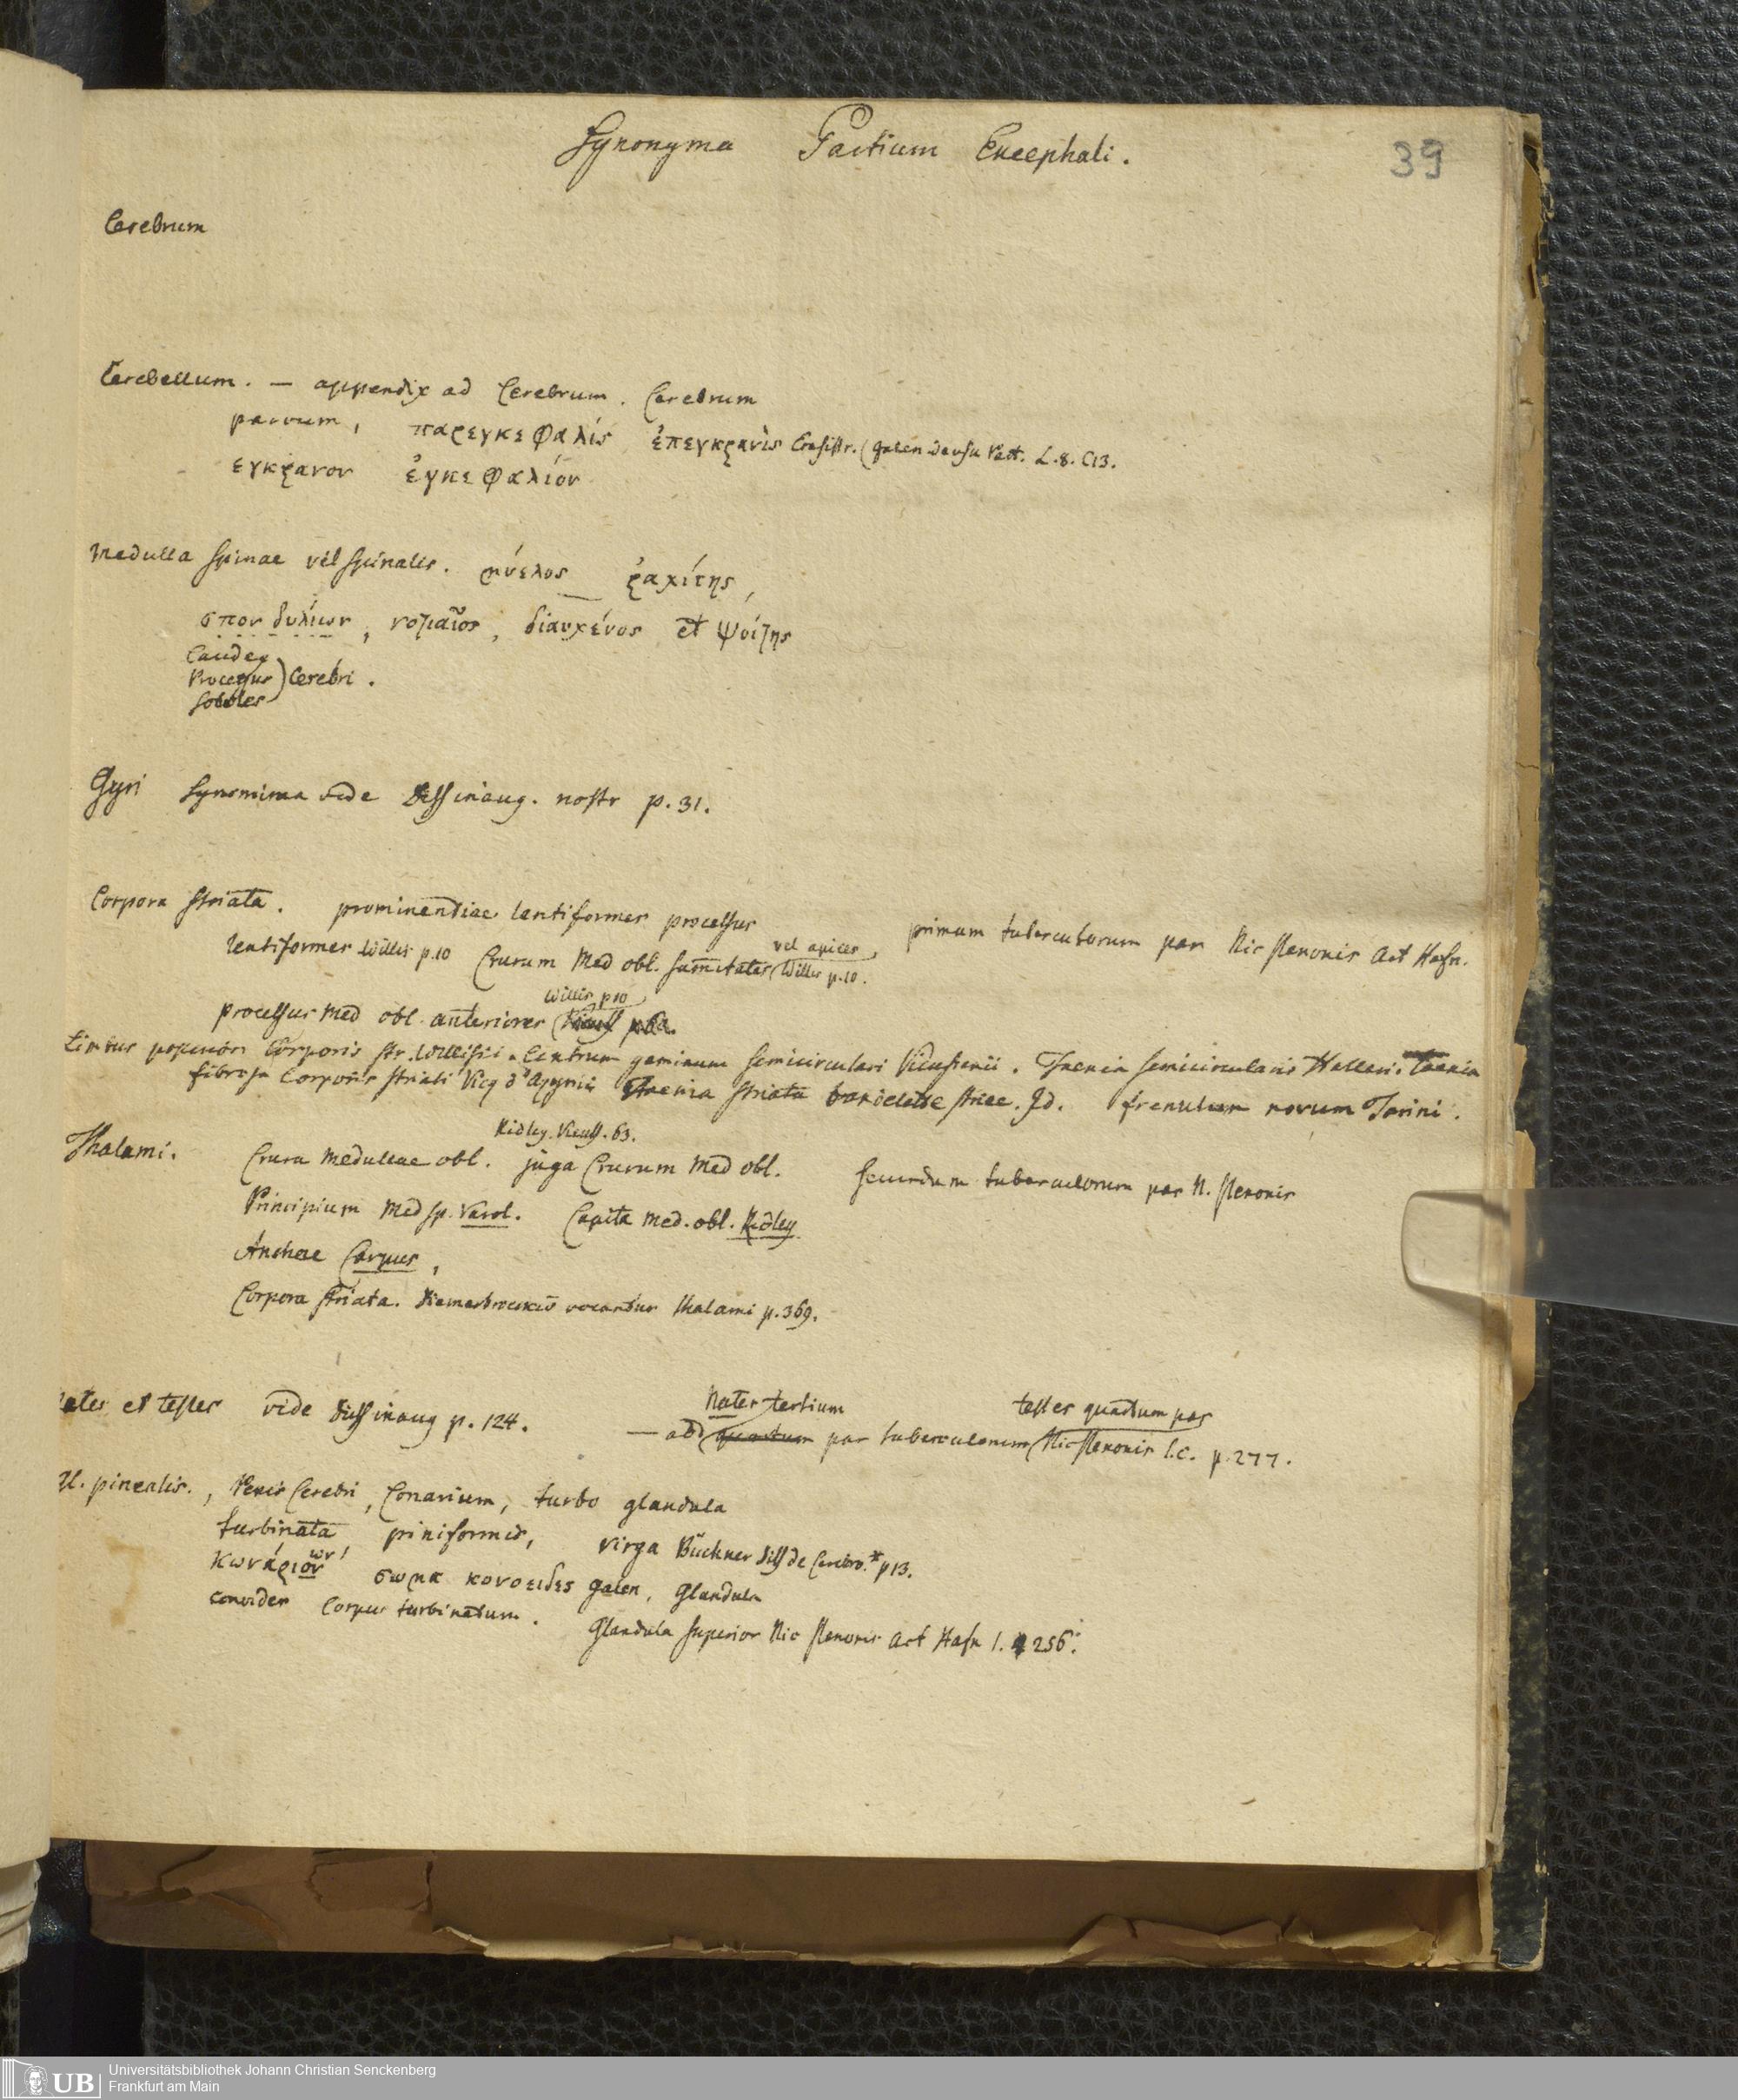 Synonyma Partium Encephali.
39
Cerebrum
Cerebellum. — appendix ad Cerebrum. Cerebrum
parvum, παρεγκεφαλίς ἐπεγκρανὶς Erasistr. (Galen de usu Part. L. 8. C13.
εγκρανον ἐγκεφαλίον
Medulla Spinae vel Spinalis. μύελος ῥαχίτης,
σπονδυλίων, νοτιαῖος, διαυχένος et ψοίτης
Caudex
Processus ) Cerebri.
Soboles
Gyri Synonima vide Diss inaug. nostr p. 31.
Corpora Striata. prominentiae lentiformes processus primum tuberculorum par Nic Stenonis Act Hafn.
lentiformes Willis p. 10 Crurum Med obl. summitates vel apices, (Willis p. 10.
processus med obl. anteriores (Willis p 10
Limbus posterior Corporis str. Willisii. Centrum geminum semicirculari Vieussenii. Taenia semicircularis Halleri. Taenia
fibrosa Corporis striati Vicq d'Azyrii Taenia striata bandelette striee. Id. frenulum novum Tarini.
Ridley. Vieuss. 63.
Thalami. Crura Medullae obl. juga Crurum Med obl. secundum tuberculorum par N. Stenonis
Principium Med sp. Varol. Capita Med. obl. Ridley
Anchae Carpus,
Corpora striata. Diemerbroeckio vocantur thalami p. 369.
Nates tertium testes quartum par
Nates et testes vide Diss inaug p. 124. — add quartum par tuberculorum (Nic Stenonis l. c. p. 277.
Gl. pinealis., Penis Cerebri, Conarium, turbo glandula
turbinata, piniformis, virga Büchner Diss de Cerebro. * p 13.
κωνάριον σωμα κονοειδες Galen, Glandula
conoides Corpus turbinatum.
Glandula superior Nic Stenonis Act Hafn 1. 256.
UB Universitätsbibliothek Johann Christian Senckenberg
Frankfurt am Main